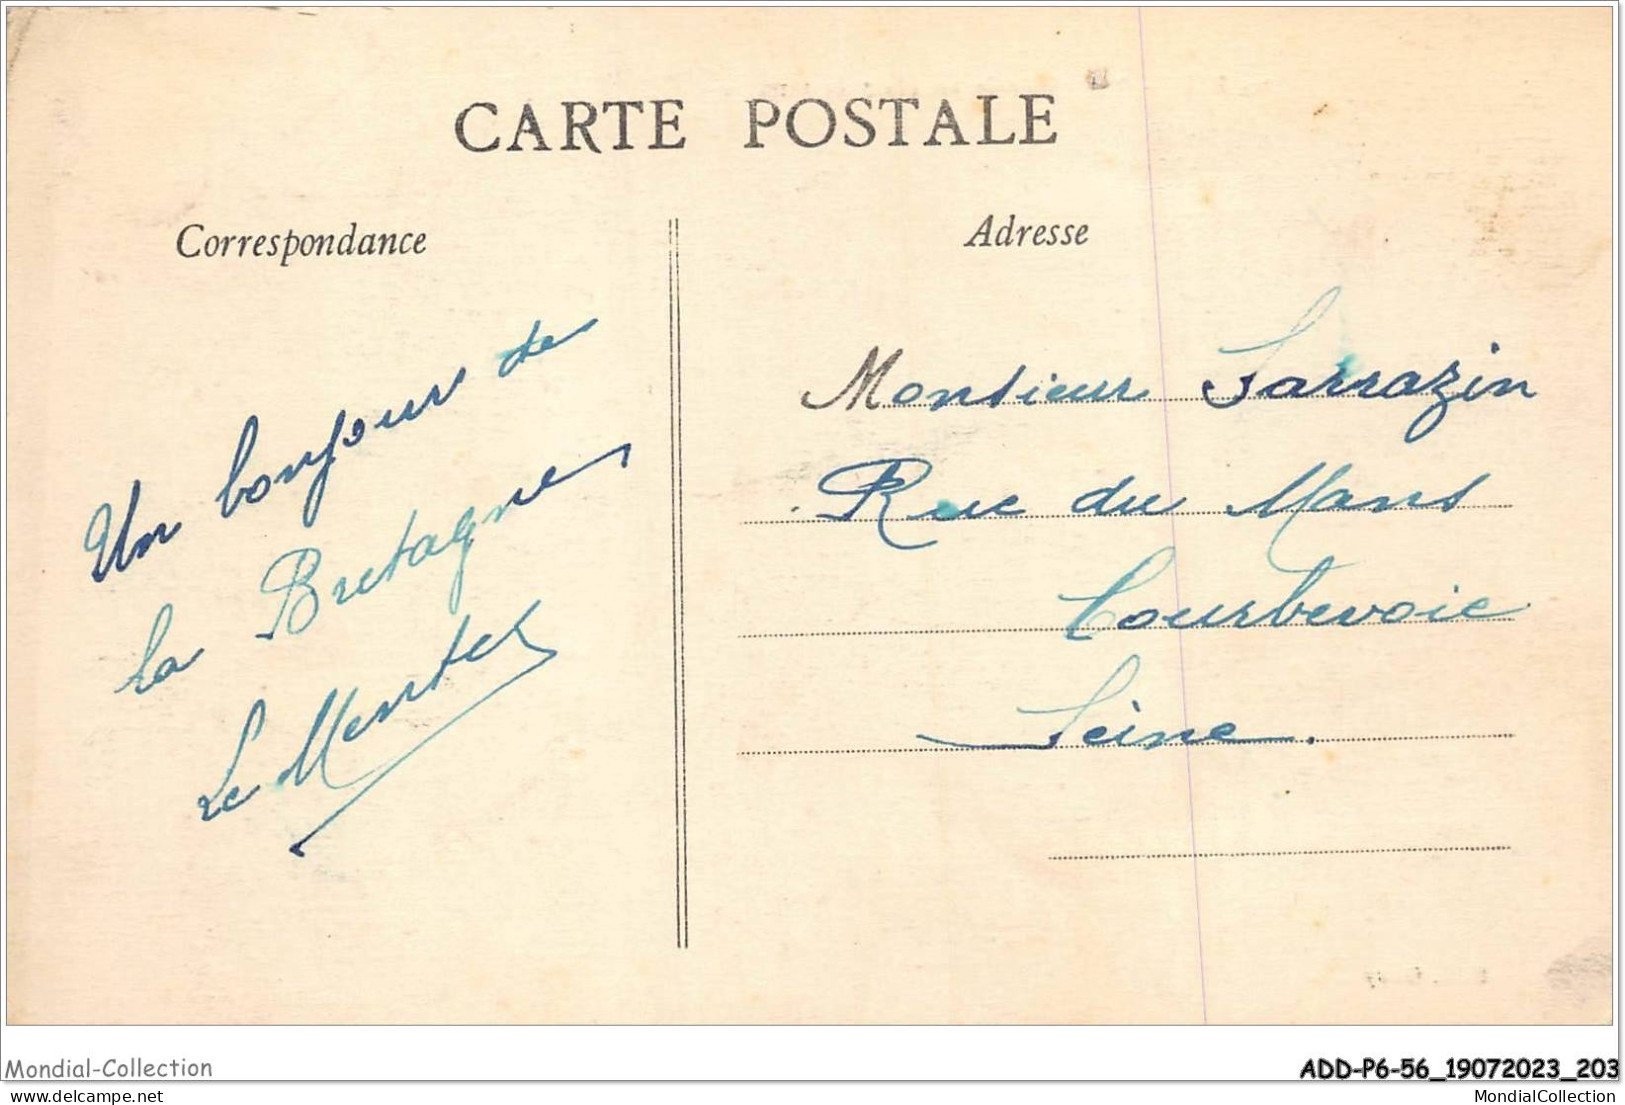 CARTE POSTALE
Correspondance
Adresse
Un bonjour de
la Bretagne
Monsieur Sarrazin
Rue du Mans
Courbevoie
Seine.
Mondial-Collection
ADD-P6-56_19072023_203
delcampe.net
MondialCollection